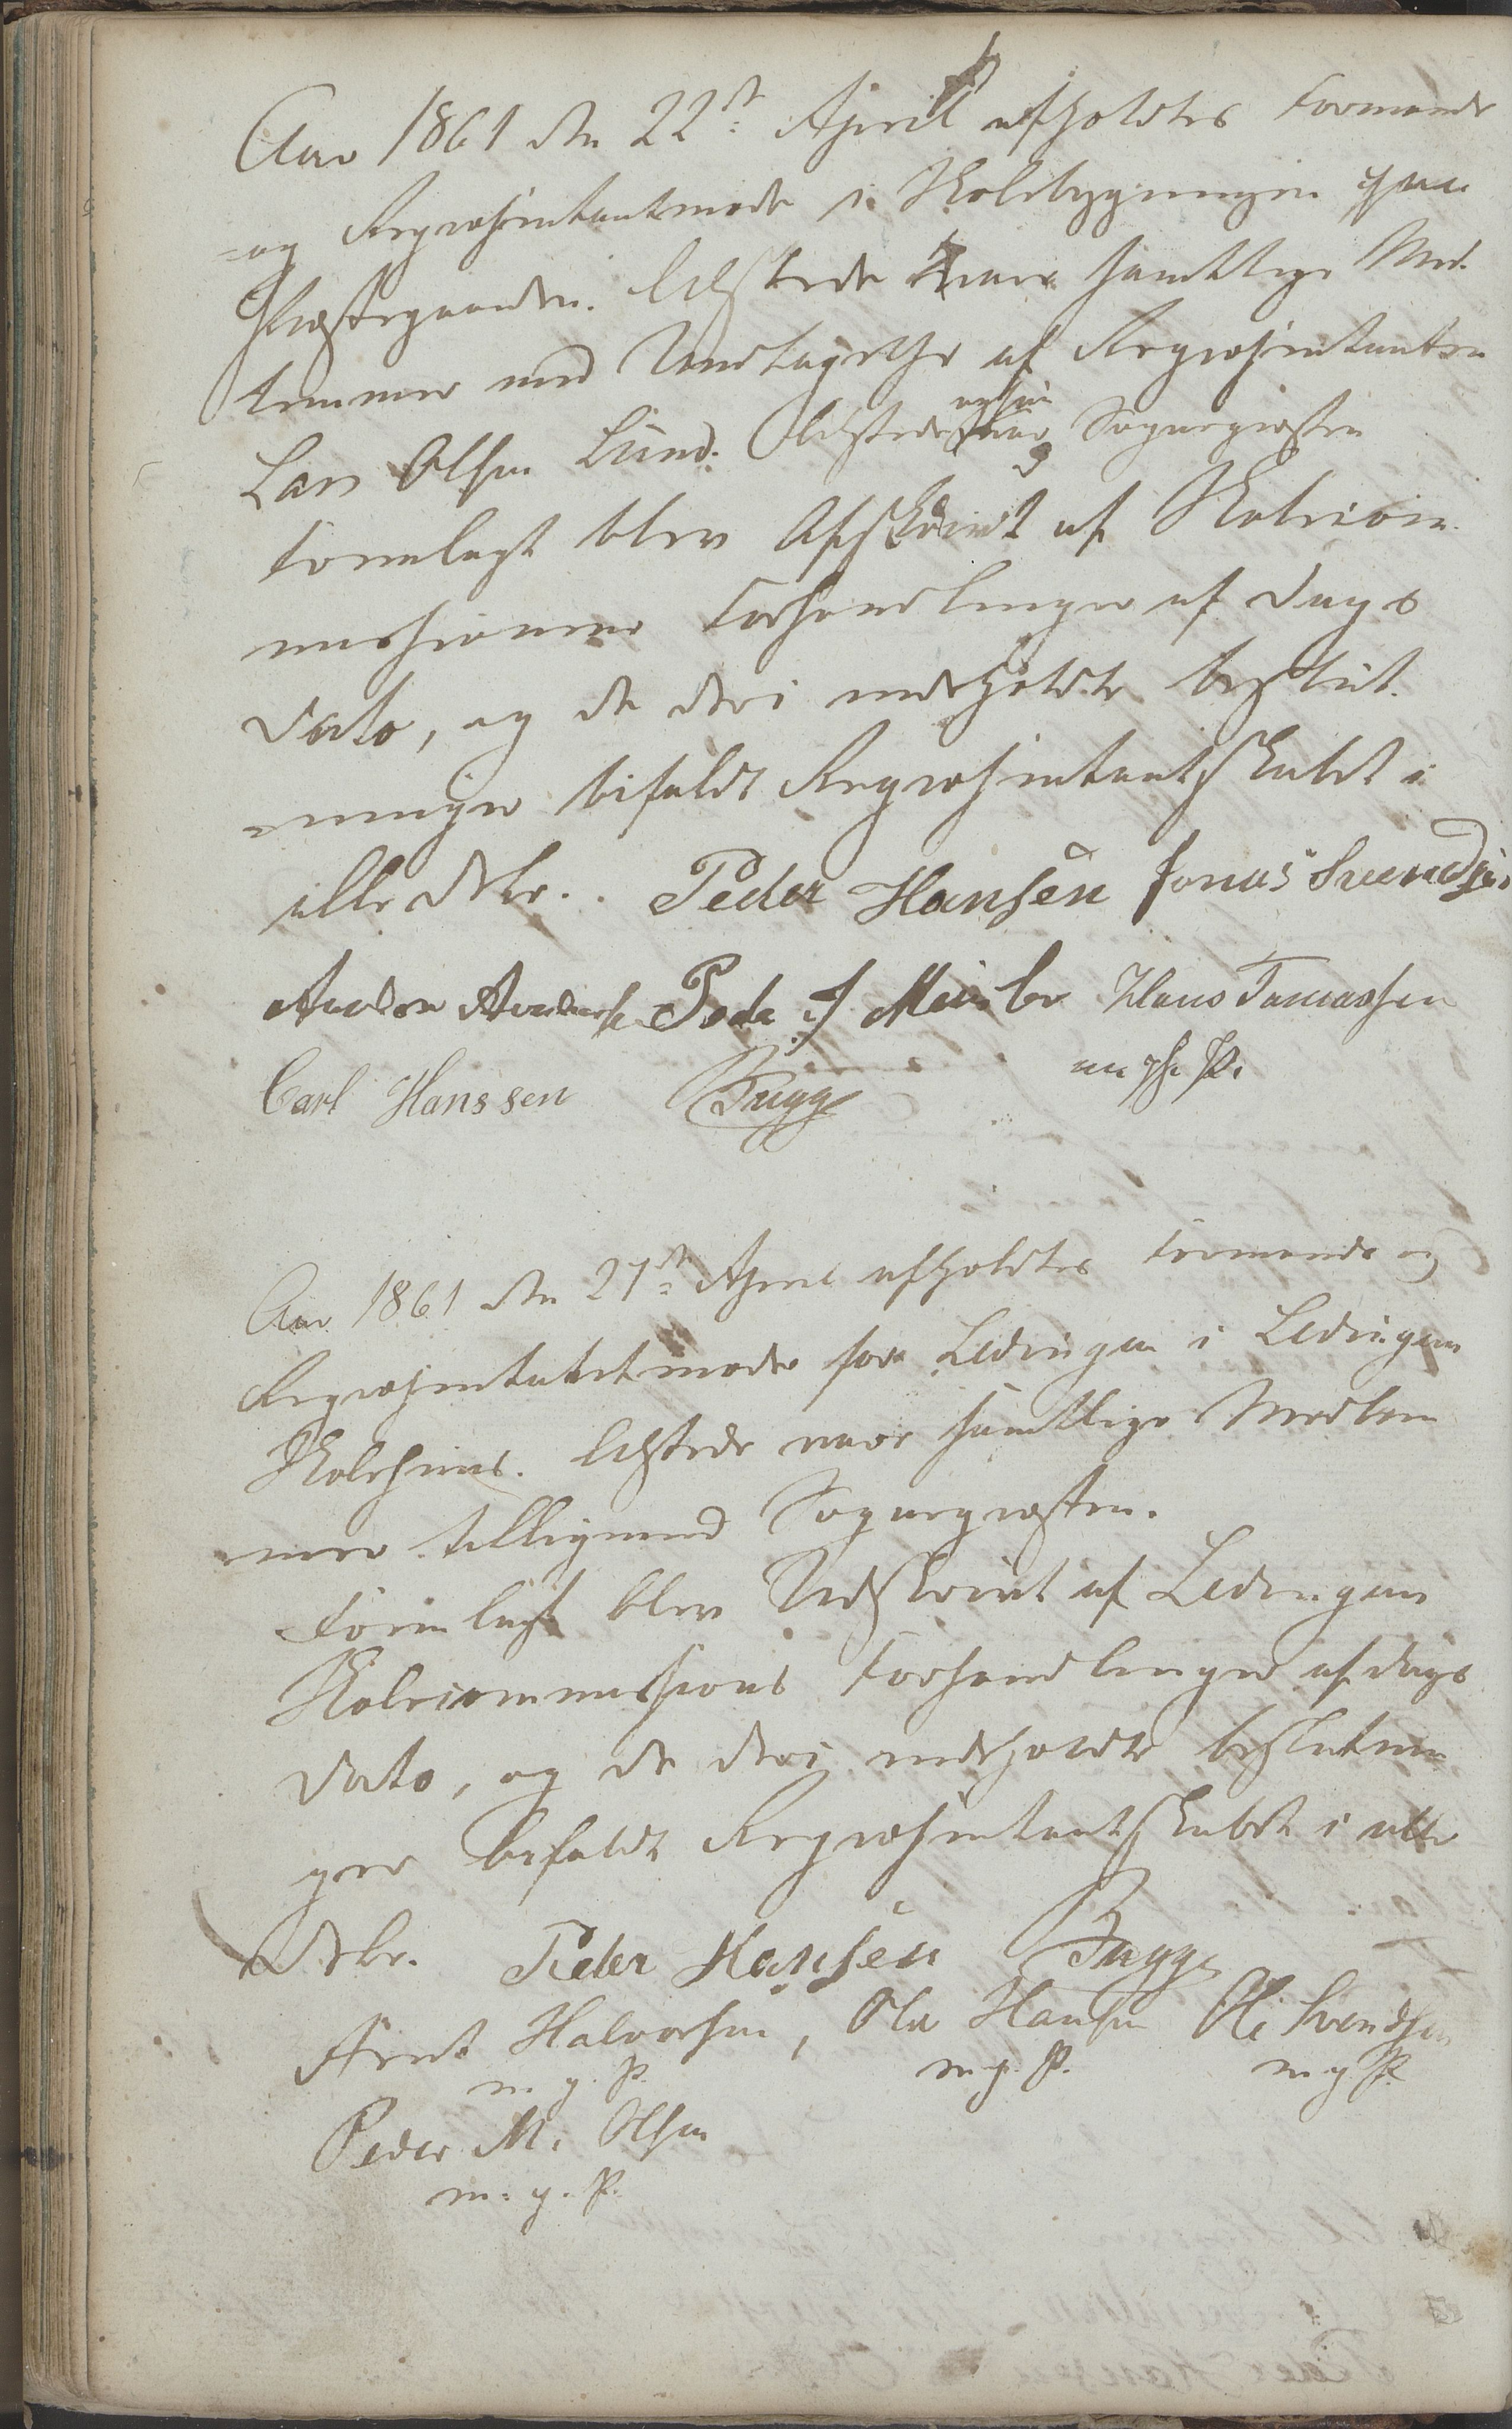 Aar 1861 den 22de April afholdtes Formands
og Repræsentantmøde i Skolebygningen paa
Præstegaarden. Tilstede vare samtlige Med-
lemmer med Undtagelse af Repræsentanten
Lars Olsen Lund. Tilstede var ogsaa Sognepræsten
Foremlagt blev Afskrivt af Skolecom-
missionens Forhandlinger af Dags
Dato, og de deri indeholdte beslut-
ninger bifaldt Repræsentantskabet i
alle Dele. Peder Hansen Jonas Svendsen
Anders Andersen Peder J Hans Tomassen
Carl Hanssen Bugge m p P.
Aar 1861 den 27de April afholdtes Formands og
Repræsentatntmøde for Lødingen i Lødingens
Skolehuus. Tilstede vare samtlige Medlem-
mer tilligemed Sognepræsten.
Foremlagt blev Udskrivt af Lødingens
Skolecommissions Forhandlinger af Dags
Dato, og de deri indeholdte beslutnin-
ger bifaldt Repræsentantskabet i alle
Dele. Peder Hansen Bugge
Arnt Halvorsen, Ola Hansen Ole Svendsen
m. p. P. m. p. P. m p P.
Peder M. Olsen
m. p. P.